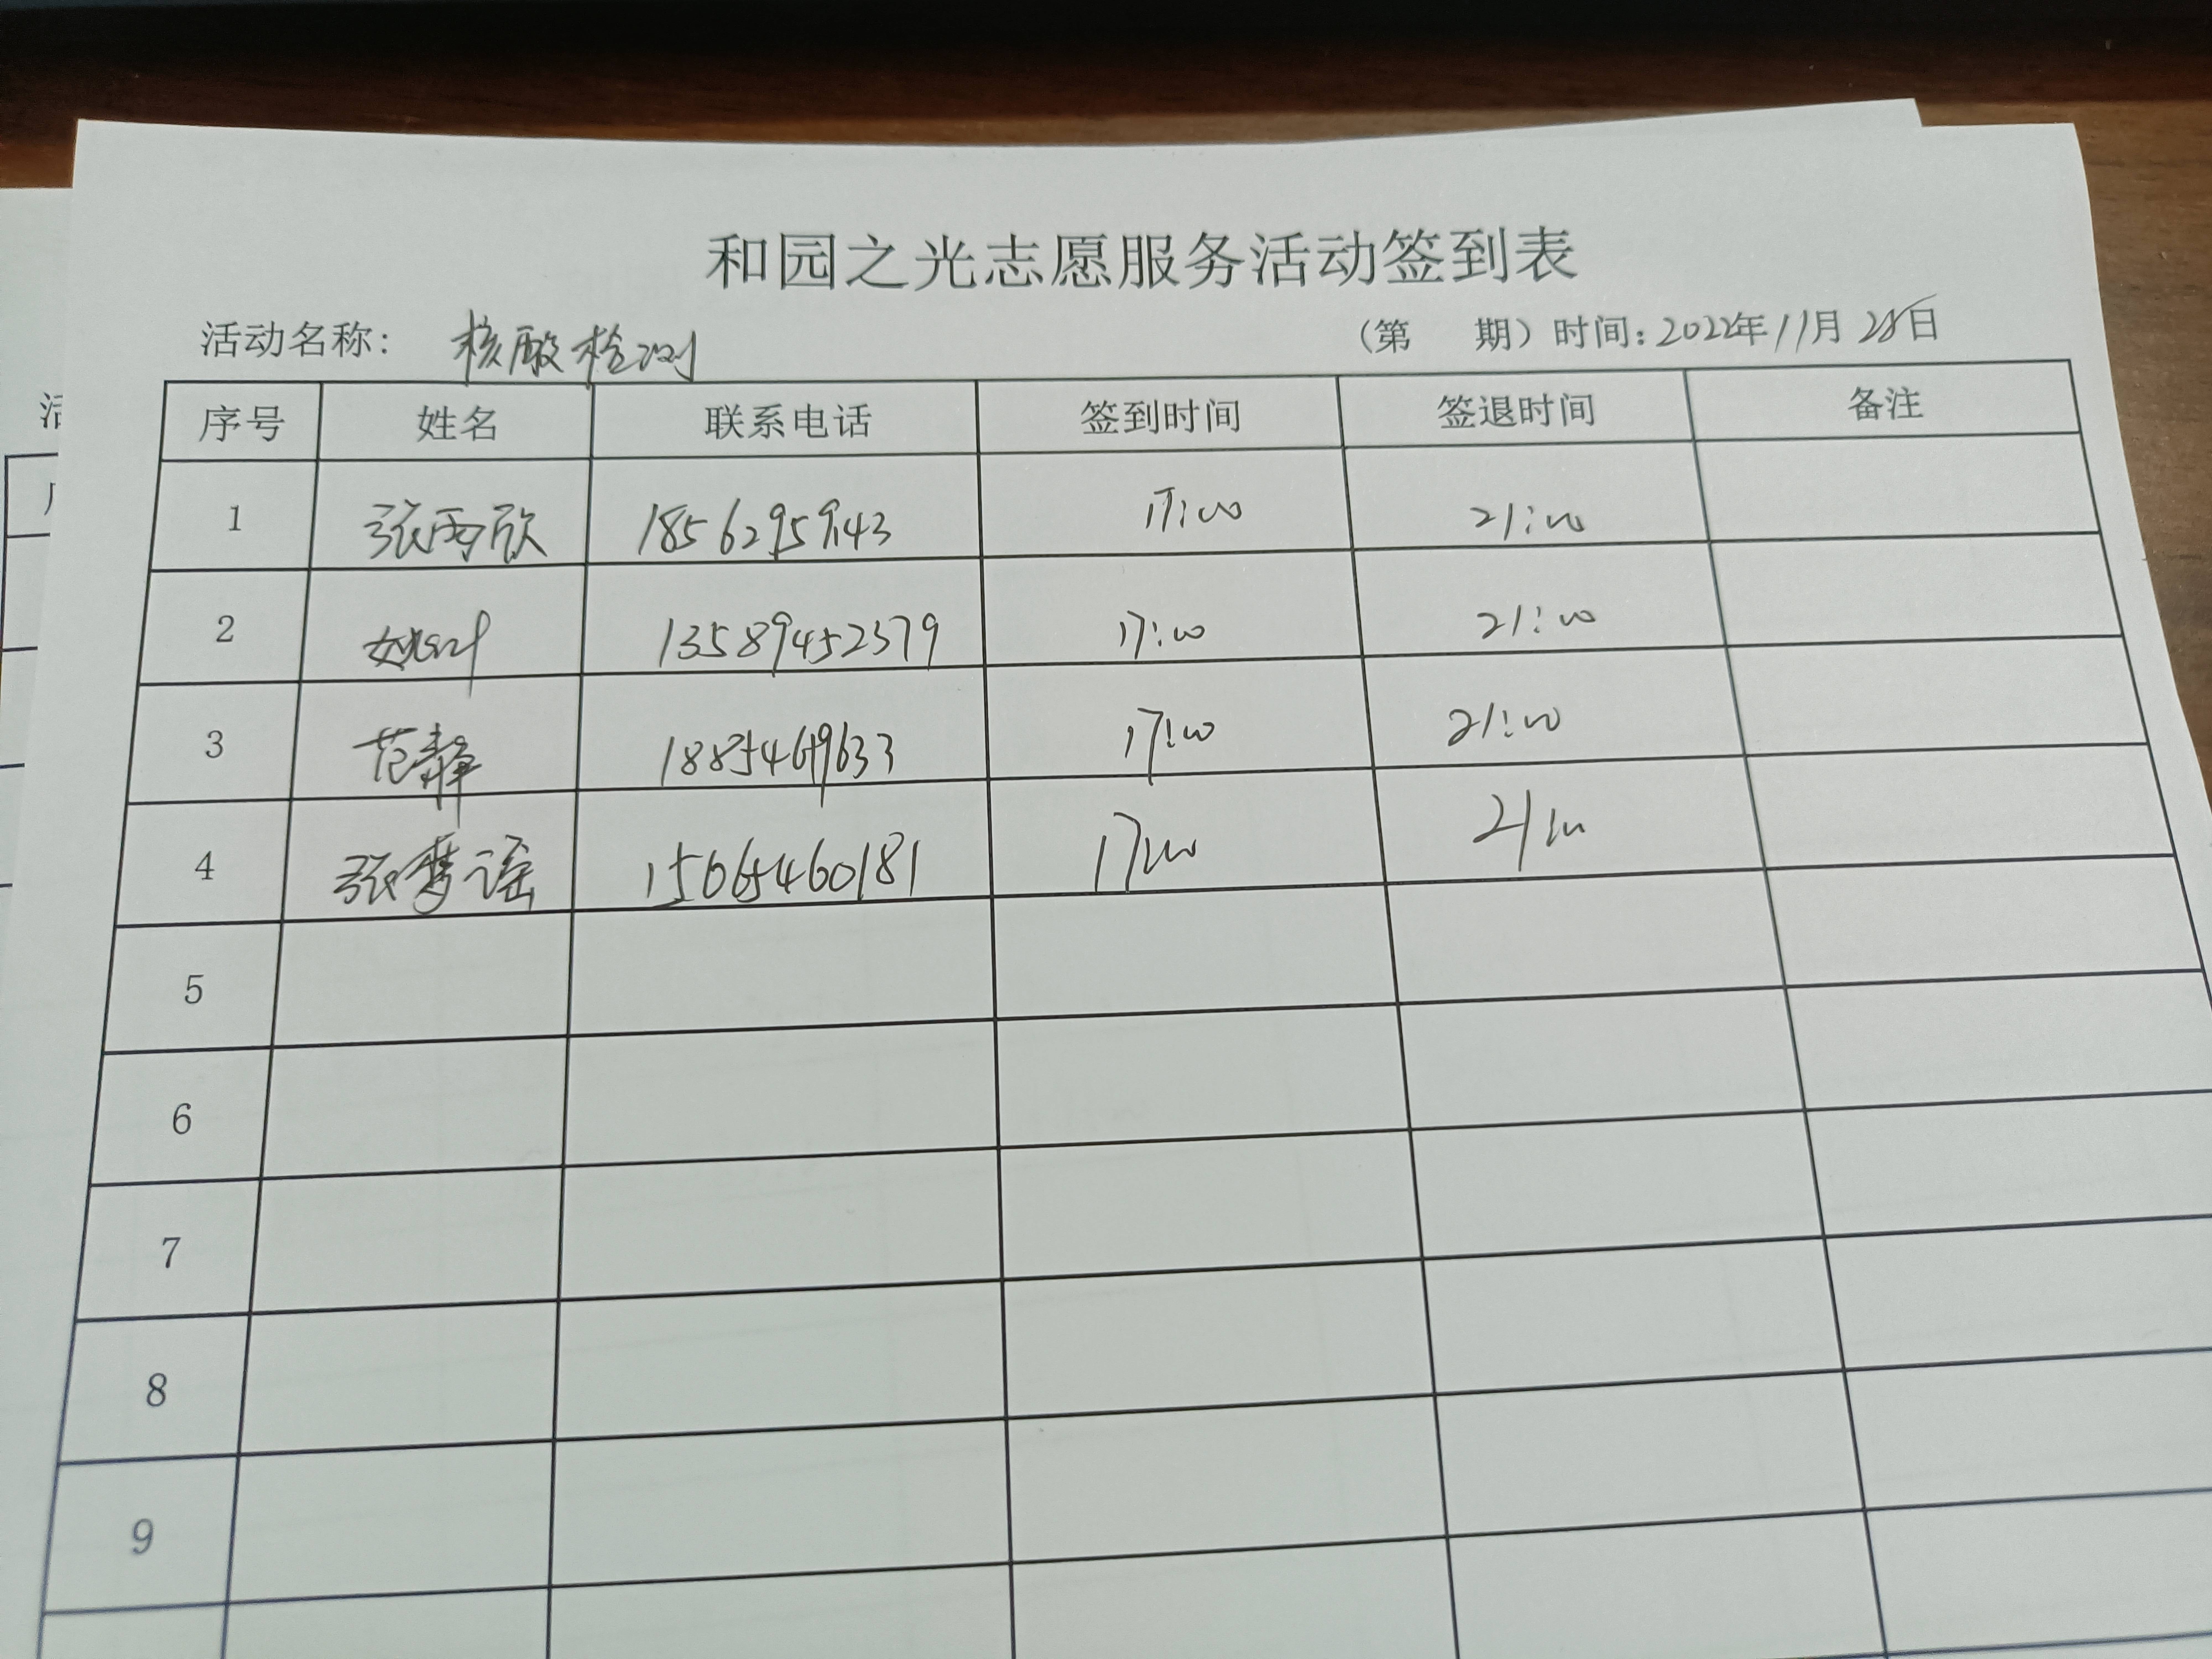 和园之光志愿服务活动签到表
活动名称： 核酸检测 （第 期）时间：2022年11月28日
序号 姓名 联系电话 签到时间 签退时间 备注
1 张雨欣 17:00 21:00
2 13589452379 17:00 21:00
3 范静 18854619633 17:00 21:00
4 张梦谣 15065460181 17:00 21:00
5
6
7
8
9
活